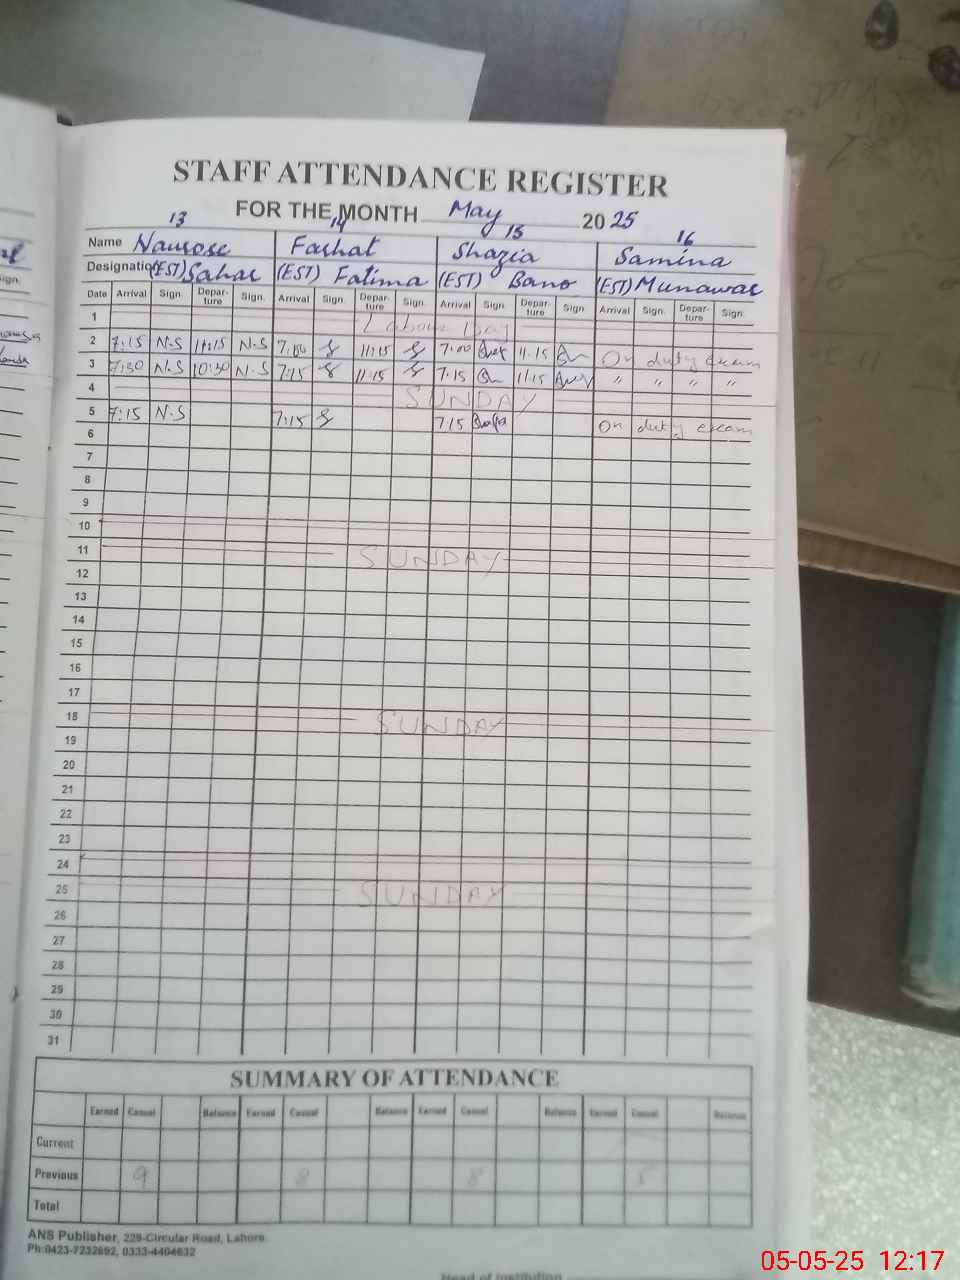 STAFF ATTENDANCE REGISTER
FOR THE MONTH May 2025
13 14 15 16
Name Naurose Farhat Shazia Samina
Designation (EST) Sahar (EST) Fatima (EST) Bano (EST) Munawar
Date Arrival Sign. Depar-ture Sign. Arrival Sign. Depar-ture Sign. Arrival Sign. Depar-ture Sign Arrival Sign. Depar-ture Sign.
1 Labour Day
2 7:15 N.S 11:15 N.S 11:15 7:00 11.15 On duty exam
3 7:30 N.S 10:30 N.S 7:15 11:15 7.15 11:15 " " " "
4 SUNDAY
5 7:15 N.S 7:15 7:15 On duty exam
6
7
8
9
10
11 SUNDAY
12
13
14
15
16
17
18 SUNDAY
19
20
21
22
23
24
25 SUNDAY
26
27
28
29
30
31
SUMMARY OF ATTENDANCE
Earned Casual Balance Earned Casual Balance Earned Casual Balance Earned Casual Balance
Current
Previous 9 8 8
Total
ANS Publisher, 229-Circular Road, Lahore.
Ph:0423-7232692, 0333-4404632
Head of Institution
05-05-25 12:17